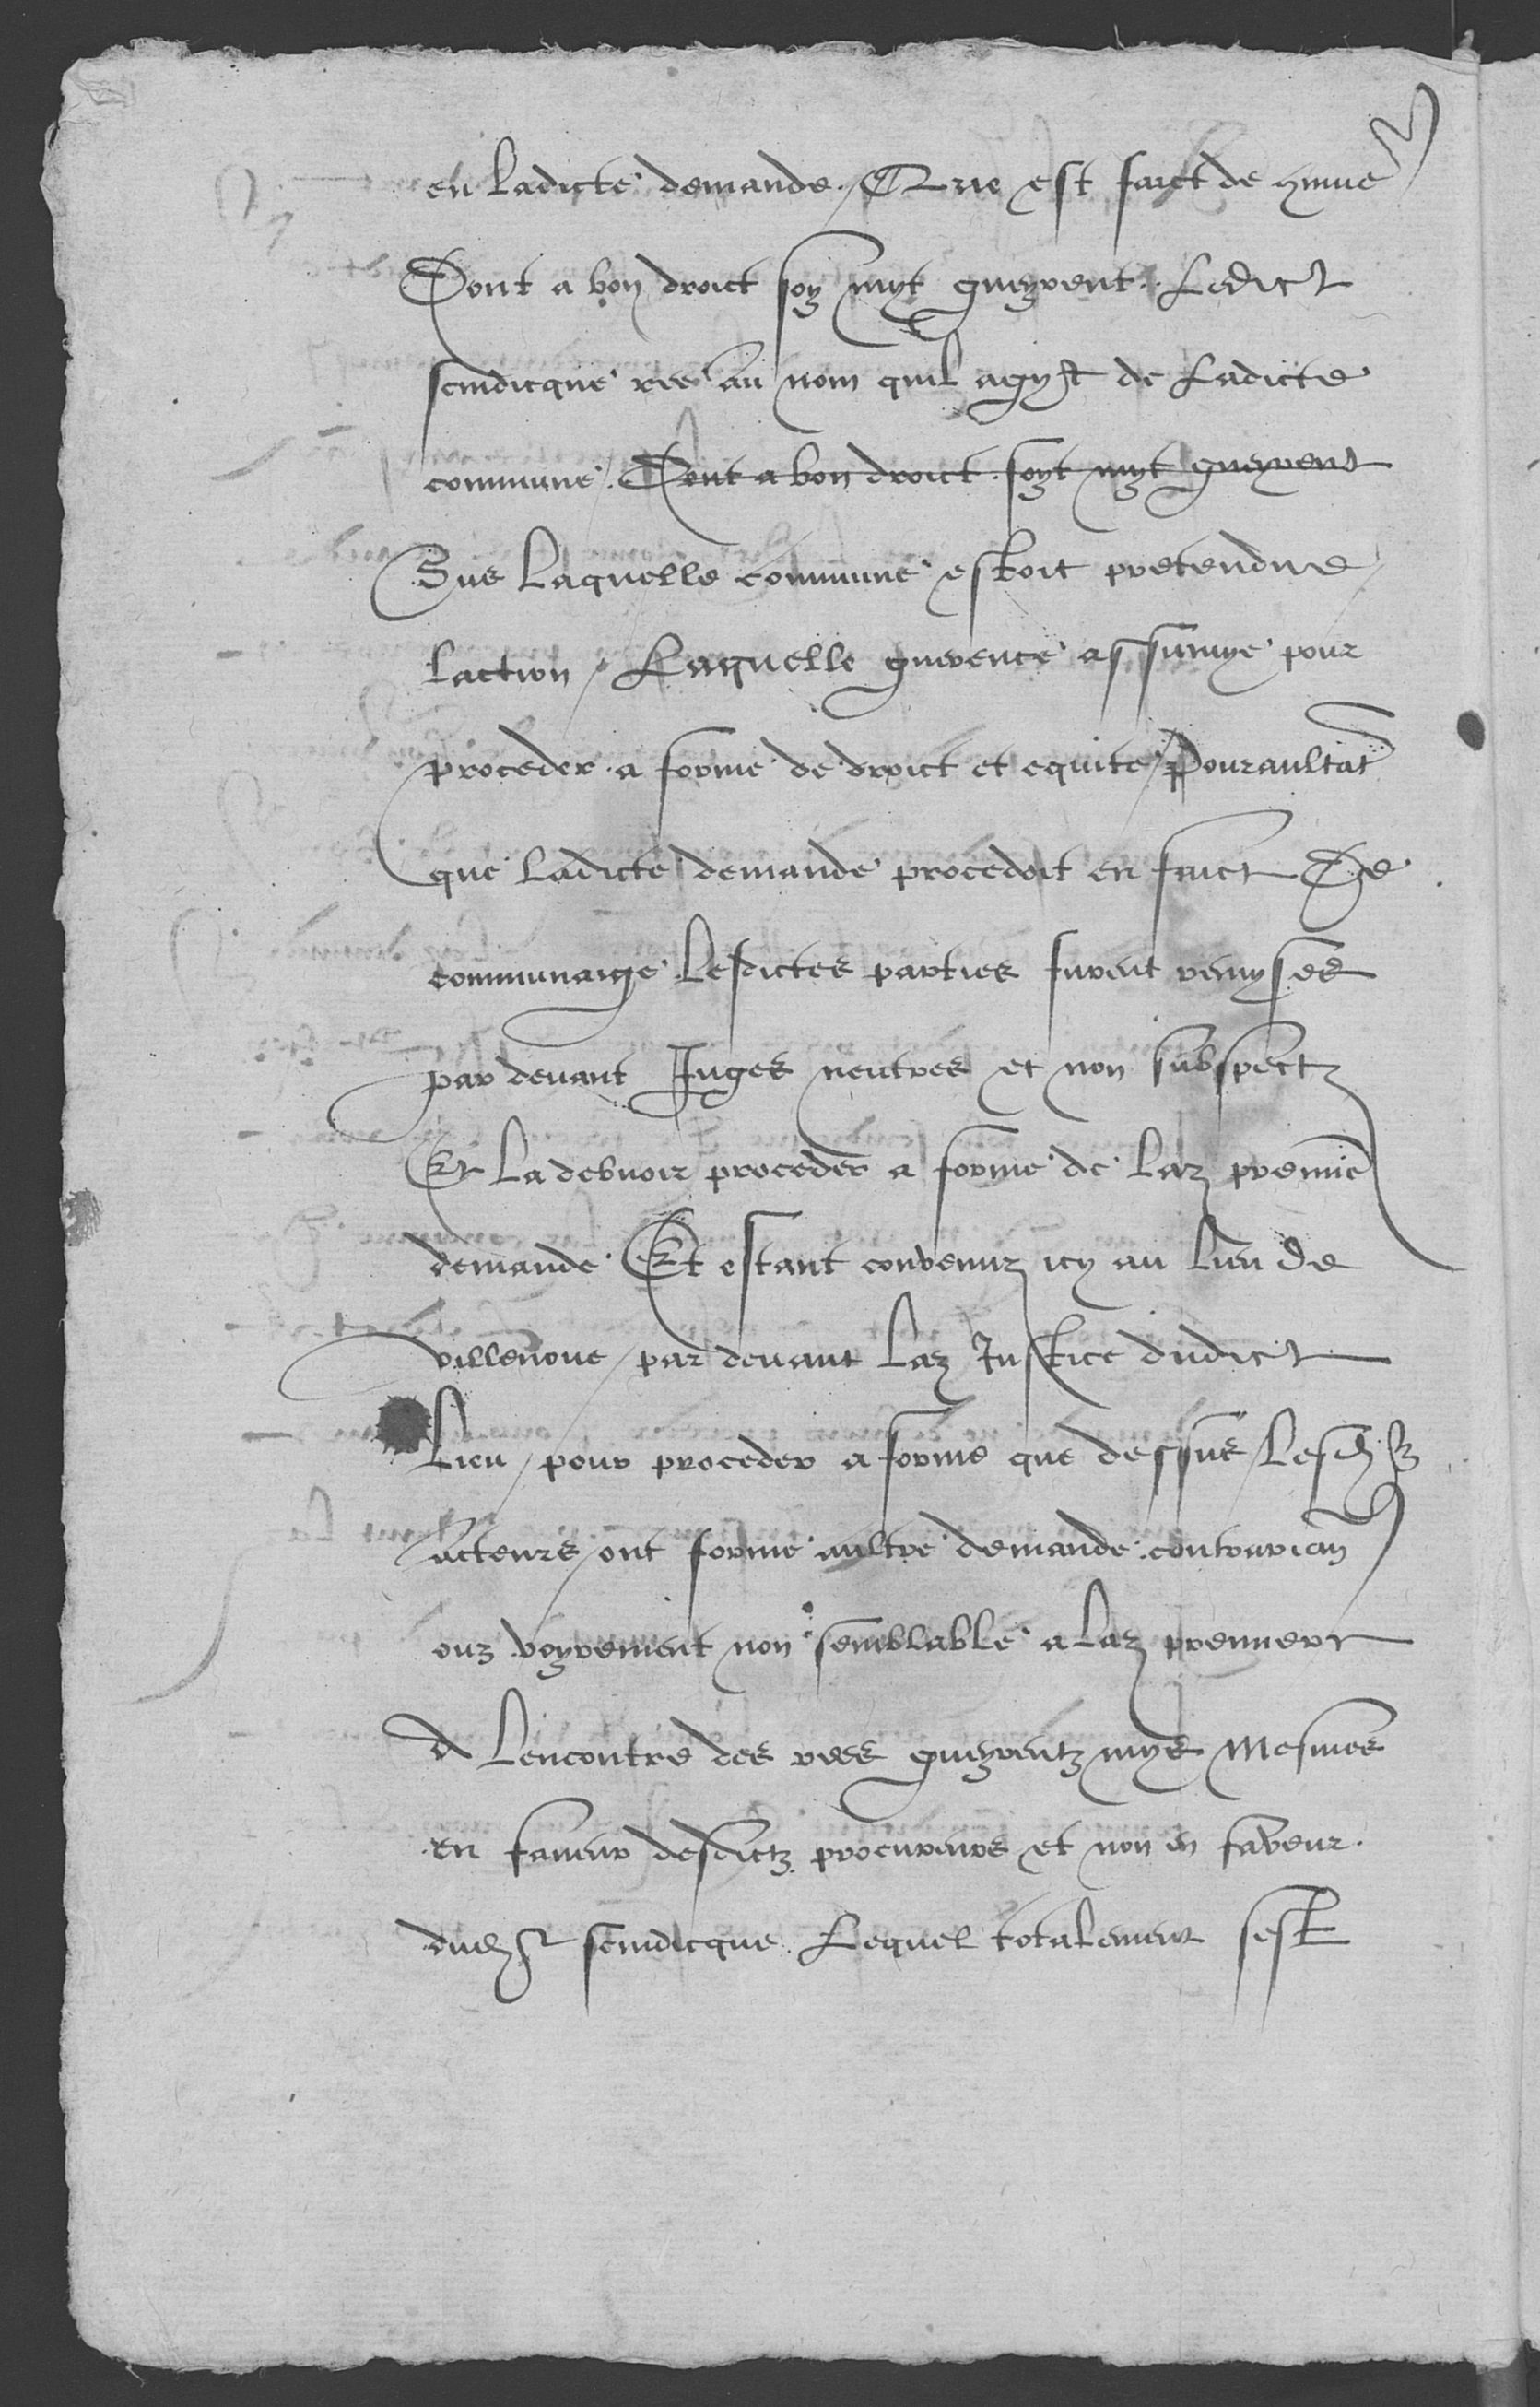 en ladicte demande / Que est faict de
Dont a bon droict soy myt gueyrent Ledict
scindicque ree au nom quil agyst de Ladicte
commune. Dont a bon droict soyt myt gueyrent
Sus Laquelle commune estoit pretendue
laction / Laquelle guerence assumye pour
proceder a forme de droict et equite / Pouraultāt
que ladicte demande procedoit en faict De
communaige Lesdictes parties furent remyses
par devant Juges neutres et non subspectz
Et La debvoir proceder a forme de Laz premie
demande Et estant convenuz icy au Lieu de
villenove / par devant Laz Justice dudict
Lieu / pour proceder a forme que dessus /
acteurs / ont forme aultre demande
ouz voyrement non semblable a Laz premiere
A Lencontre des rees gueyrentz mys Mesmes
en faveur desdictz procureurs et non en faveur
scindicque Lequel totalement sest